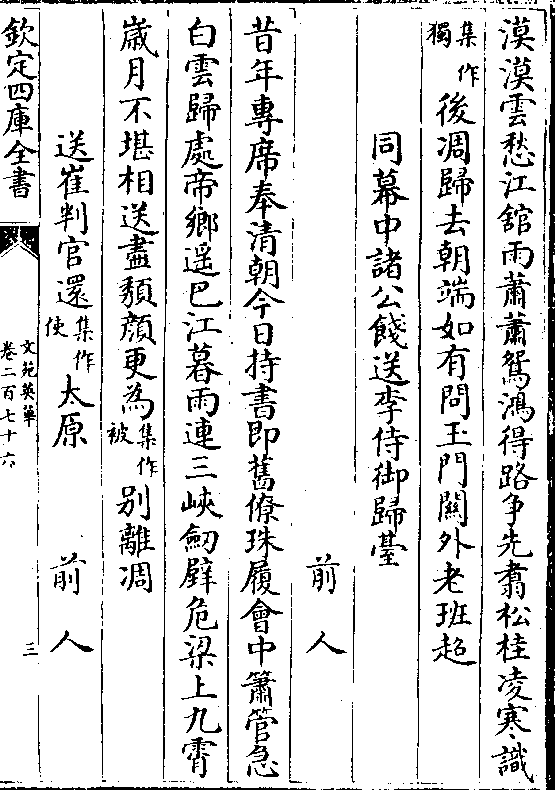 漠漠雲愁江舘雨蕭蕭鴛鴻得路争先翥松桂凌寒識
集作獨後凋歸去朝端如有問玉門關外老班超
同幕中諸公餞送李侍御歸臺
前人
昔年專席奉清朝今日持書即舊僚珠履會中簫管急
白雲歸處帝鄉遥巴江暮雨連三峽劒壁危梁上九霄
嵗月不堪相送盡頽顔更為集作被别離凋
送崔判官還集作使太原
前人
欽定四庫全書
文苑英華
卷二百七十六
三